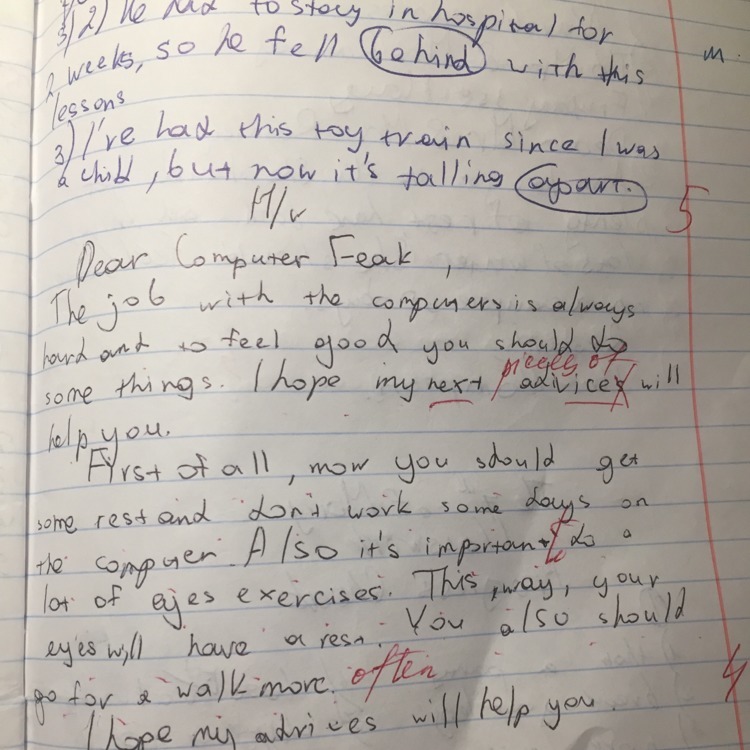 3) 2) He had to stay in hospital for
2 weeks, so he fell behind with this
lessons
3) I've had this toy train since I was
a child, but now it's falling apart.
5
H/w
Dear Computer Freak,
The job with the computers is always
hard and to feel good you should do
some things. I hope my next pieces of advices will
help you.
Fyrst of all, now you should get
some rest and don't work some days on
the computer. Also it's important to do a
lot of eyes exercises. This way, your
eyes will have a rest. You also should
go for a walk more. often
4
I hope my advices will help you.